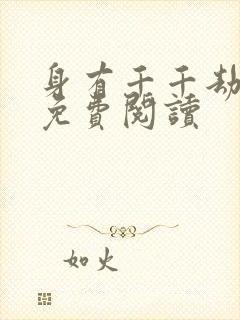 身有千千劫
免費閱讀
如火